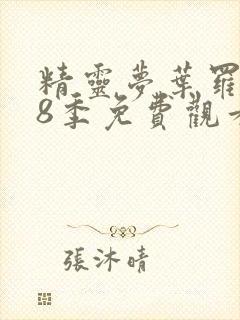 精靈夢葉羅
8季免費觀
張沐晴